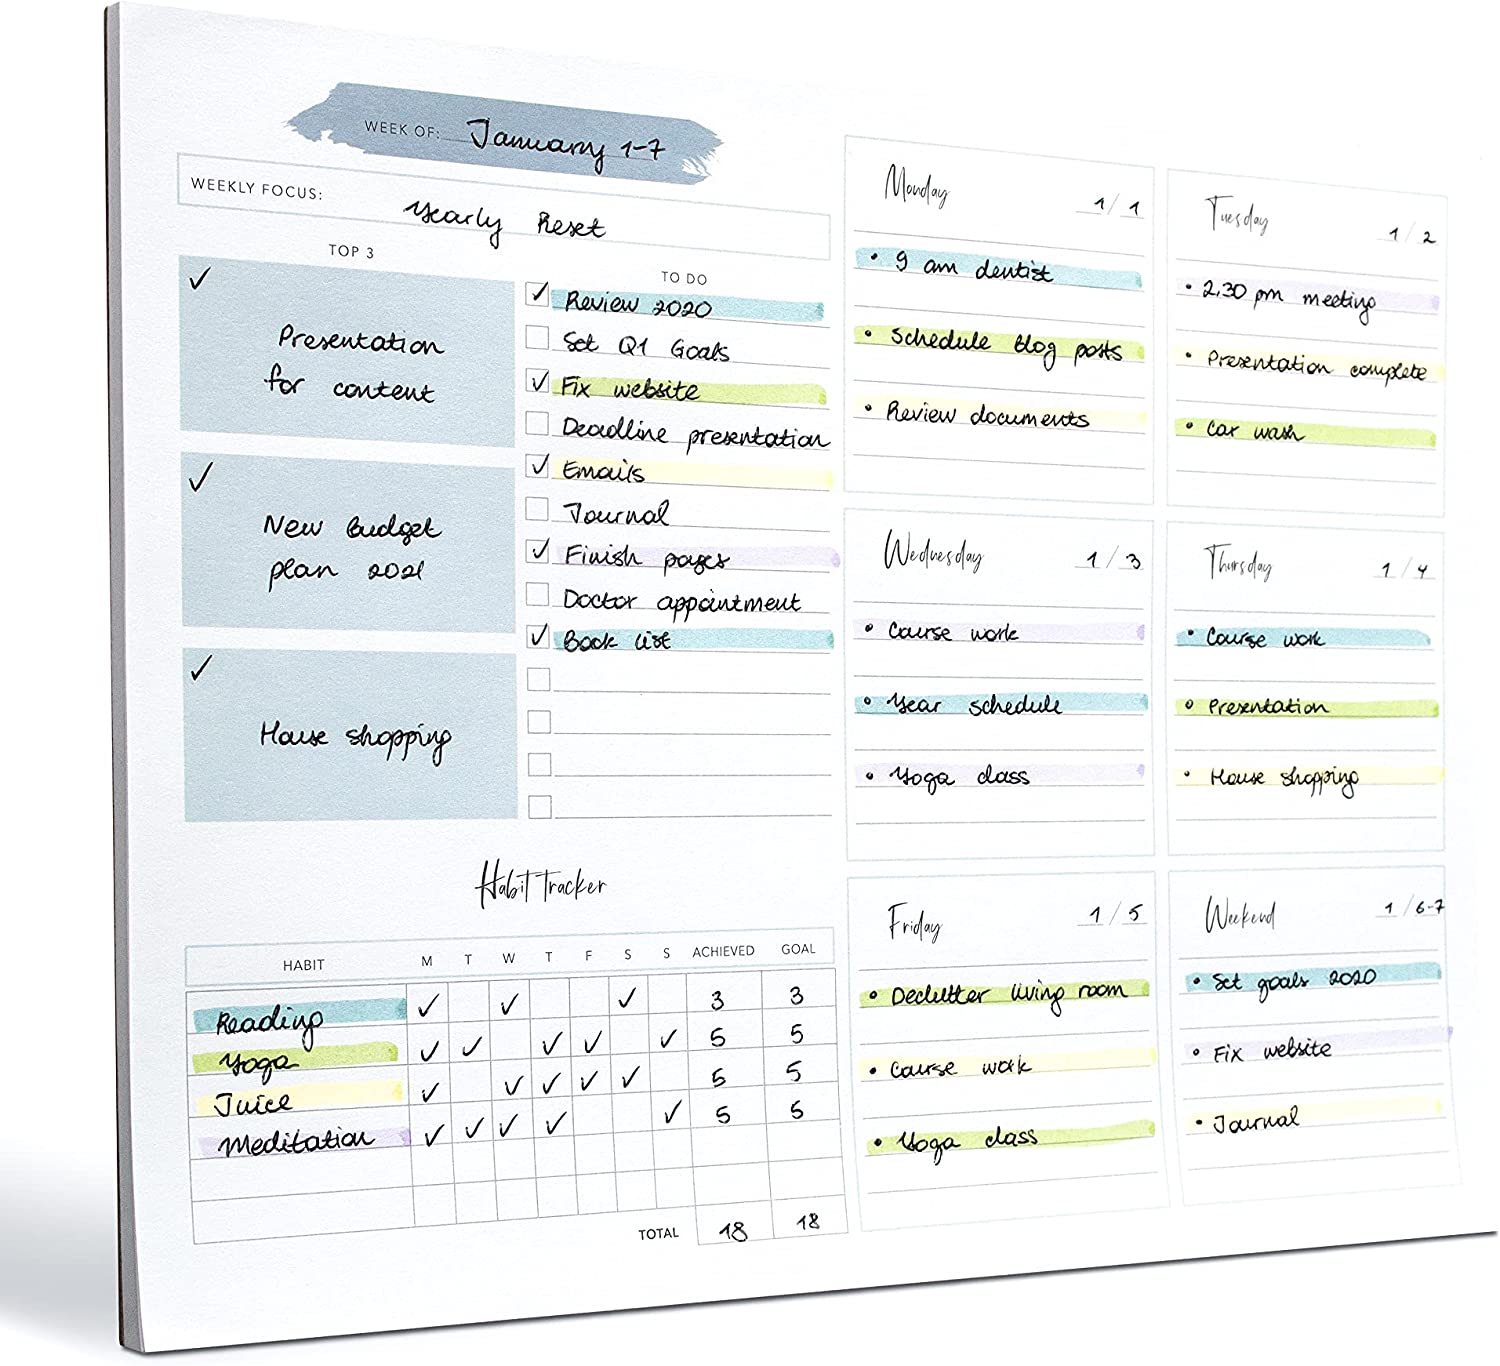 WEEK OF: January 1-7
WEEKLY FOCUS: Yearly Reset
TOP 3
✓
Presentation
for content
✓
New budget
plan 2021
✓
House shopping
TO DO
✓ Review 2020
Set Q1 Goals
✓ Fix website
Deadline presentation
✓ Emails
Journal
✓ Finish pages
Doctor appointment
✓ Book list
Habit Tracker
HABIT M T W T F S S ACHIEVED GOAL
Reading ✓ ✓ ✓ 3 3
Yoga ✓ ✓ ✓ ✓ ✓ 5 5
Juice ✓ ✓ ✓ ✓ ✓ 5 5
Meditation ✓ ✓ ✓ ✓ ✓ 5 5
TOTAL 18 18
Monday 1/1
• 9 am dentist
• Schedule blog posts
• Review documents
Tuesday 1/2
• 2.30 pm meeting
• Presentation complete
• Car wash
Wednesday 1/3
• Course work
• Year schedule
• Yoga class
Thursday 1/4
• Course work
• Presentation
• House shopping
Friday 1/5
• Declutter living room
• Course work
• Yoga class
Weekend 1/6-7
• Set goals 2020
• Fix website
• Journal